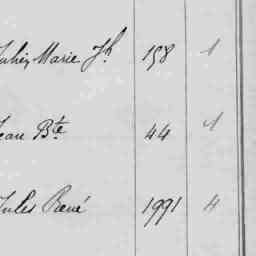 Julien Marie Jh 158 1
Jean Bte 44 1
Jules René 1991 4